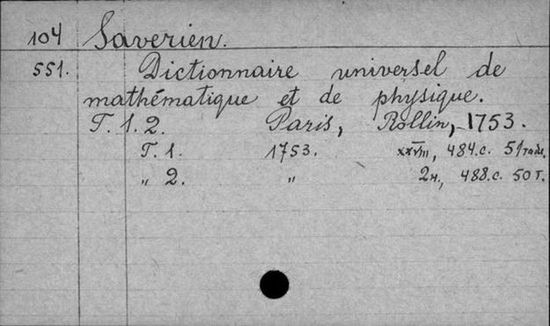 104 Saverien.
551. Dictionnaire universel de
mathématique et de physique.
T. 1. 2. Paris, Rollin, 1753.
T. 1. 1753. xxviii, 484.c. 51 табл.
" 2. " 2н, 488.c. 50 т.